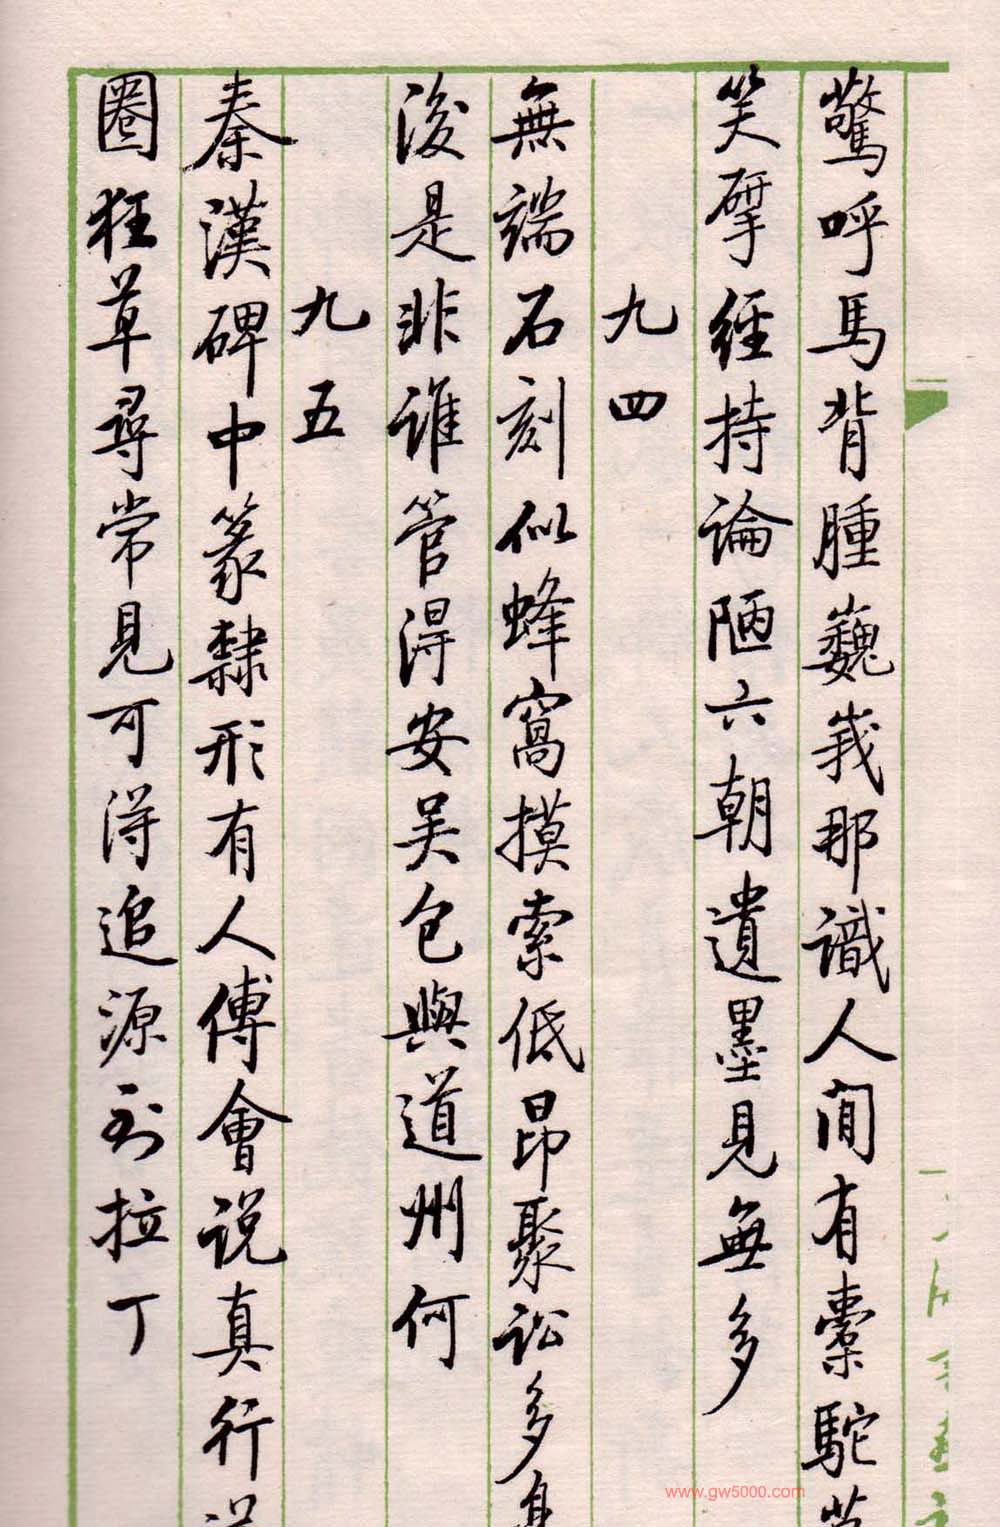 驚呼馬背腫巍峩那識人間有橐駝
笑揅經持論陋六朝遺墨見無多
九四
無端石刻似蜂窩摸索低昂聚訟多身
後是非誰管得安吴包與道州何
九五
秦漢碑中篆隸形有人傅會说真行
圈狂草尋常見可得追源到拉丁
www.gw5000.com